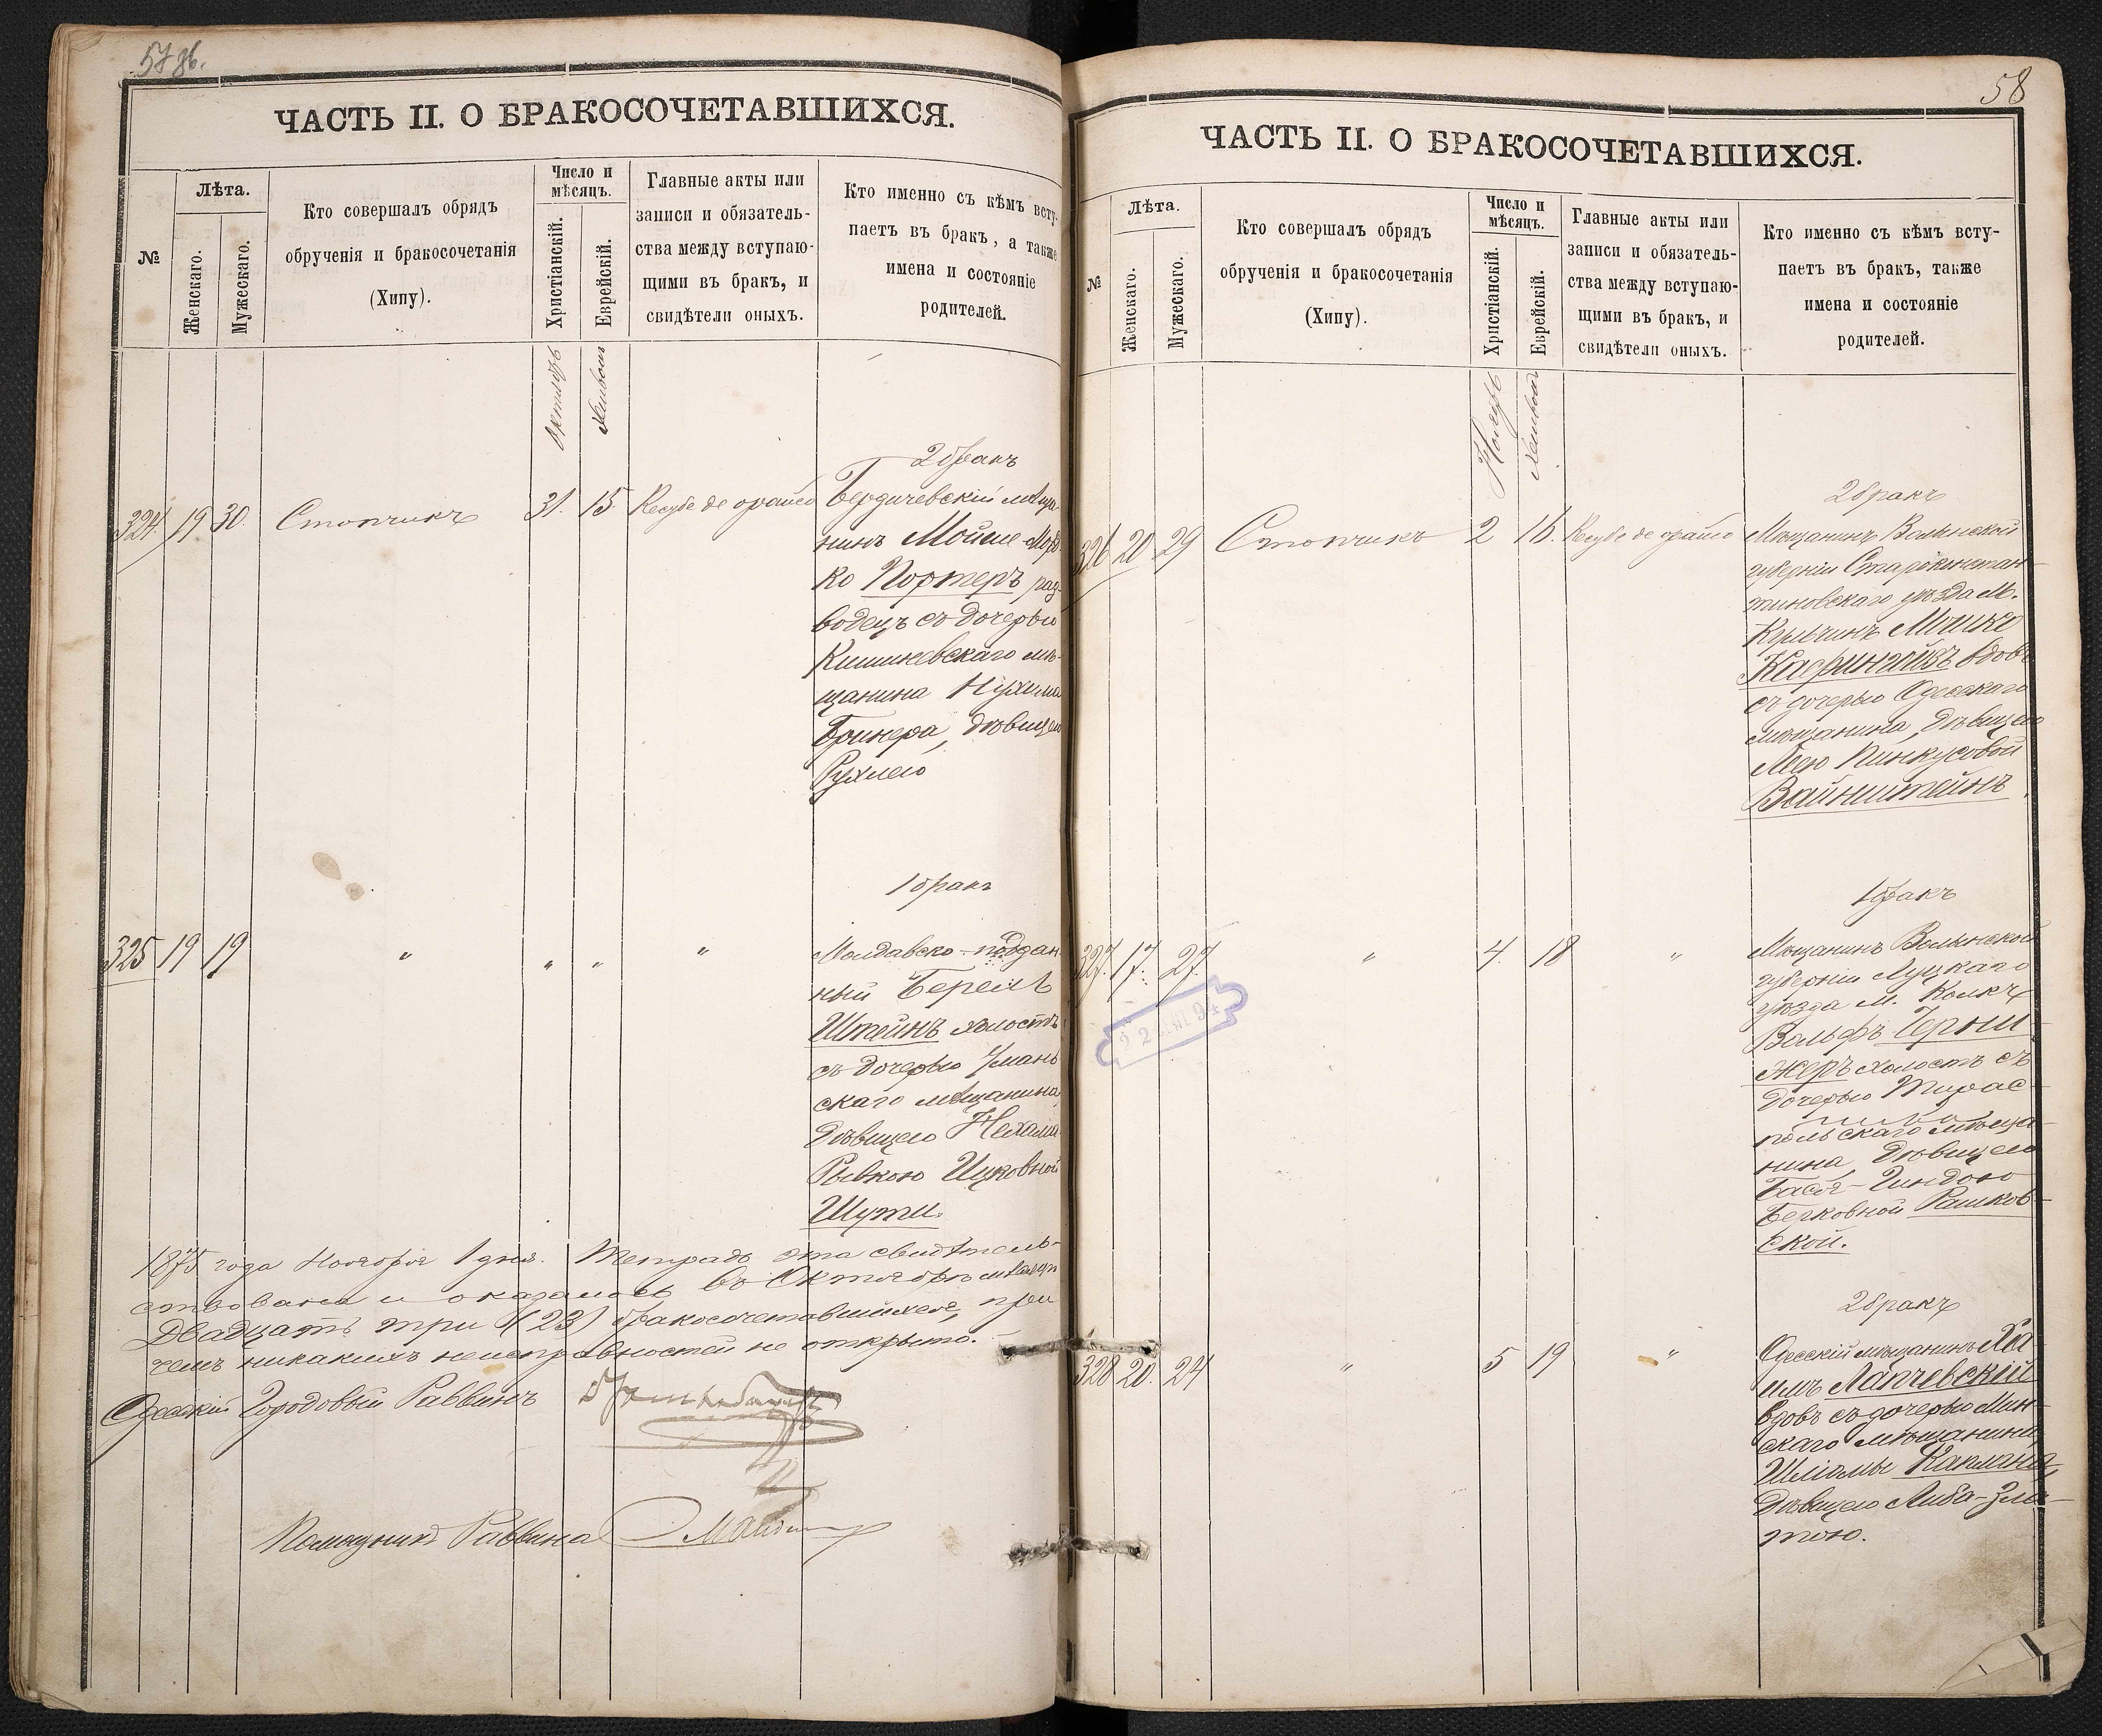 57 об.
ЧАСТЬ II. О БРАКОСОЧЕТАВШИХСЯ.
№
Лѣта.
Женскаго.
Мужескаго.
Кто совершалъ обрядъ
обрученія и бракосочетанія
(Хипу).
Число и
мѣсяцъ.
Христіанскій.
Еврейскій.
Главные акты или
записи и обязатель-
ства между вступаю-
щими въ бракъ, и
свидѣтели оныхъ.
Кто именно съ кѣмъ всту-
паетъ въ бракъ, а также
имена и состояніе
родителей.
Октябрь
Хешвонъ
2 бракъ
324. 19 30. Стопчикъ 31. 15. Кесубе де орайсо Бердичевскій мѣща-
нинъ Мойше-
ко Портеръ раз-
водецъ съ дочерью
Кишиневскаго мѣ-
щанина Нухима
Бринера, дѣвицею
Рухлею
1 бракъ
325 19 19 " " " " Молдавско-поддан
ный Берелъ
Штейнъ холостъ
съ дочерью Уман
скаго мѣщанина,
дѣвицею Нехама
Рывкою Ицковной
Шути.
1875 года Ноября 1 дня. Тетрадь эта свидѣтель-
ствована и оказалось въ Октябрѣ мѣсяцѣ
двадцать три (23) бракосочетавшихся, при
чемъ никакихъ неисправностей не открыто.
Одесскій Городовый Раввинъ
Помощникъ Раввина
58
ЧАСТЬ II. О БРАКОСОЧЕТАВШИХСЯ.
№
Лѣта.
Женскаго.
Мужескаго.
Кто совершалъ обрядъ
обрученія и бракосочетанія
(Хипу).
Число и
мѣсяцъ.
Христіанскій.
Еврейскій.
Главные акты или
записи и обязатель-
ства между вступаю-
щими въ бракъ, и
свидѣтели оныхъ.
Кто именно съ кѣмъ всту-
паетъ въ бракъ, также
имена и состояніе
родителей.
Ноябрь
Хешвонъ
2 бракъ
326 20 29 Стопчикъ 2 16. Кесубе де орайсо Мѣщанинъ Волынской
губерніи Староконстан-
тиновскаго уѣзда М.
Кульчинъ Мошко
вдовъ
съ дочерью Одесскаго
мѣщанина, дѣвицею
Лею Пинкусовой
Вайнштейнъ.
1 бракъ
327. 17. 27. " 4. 18 " Мѣщанинъ Волынской
губерніи Луцкаго
уѣзда м. Колкъ
Вольфъ Герши-
жеръ холостъ съ
дочерью Тирас-
польскаго мѣща-
нина, дѣвицею
Бася-Гиндою
Берковной Рашков-
ской.
2 бракъ
328 20. 24 " 5 19 " Одесскій мѣщанинъ Ха
имъ Лапчевскій
вдовъ съ дочерью Мин-
скаго мѣщанина
Шліомы Каплана,
дѣвицею Либа-Зла-
тою.